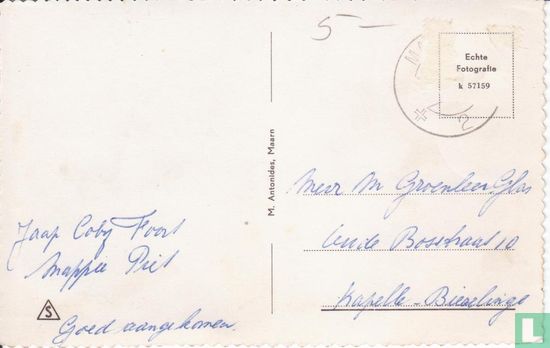 5-
Echte
Fotografie
k 57159
M. Antonides, Maarn
Jaap Coby Foort
Mappie Piet
Goed aangekomen
S
Meer M Groenleer Glas
Oude Bosstraat 10
Kapelle-Biezelinge
LASTDODO